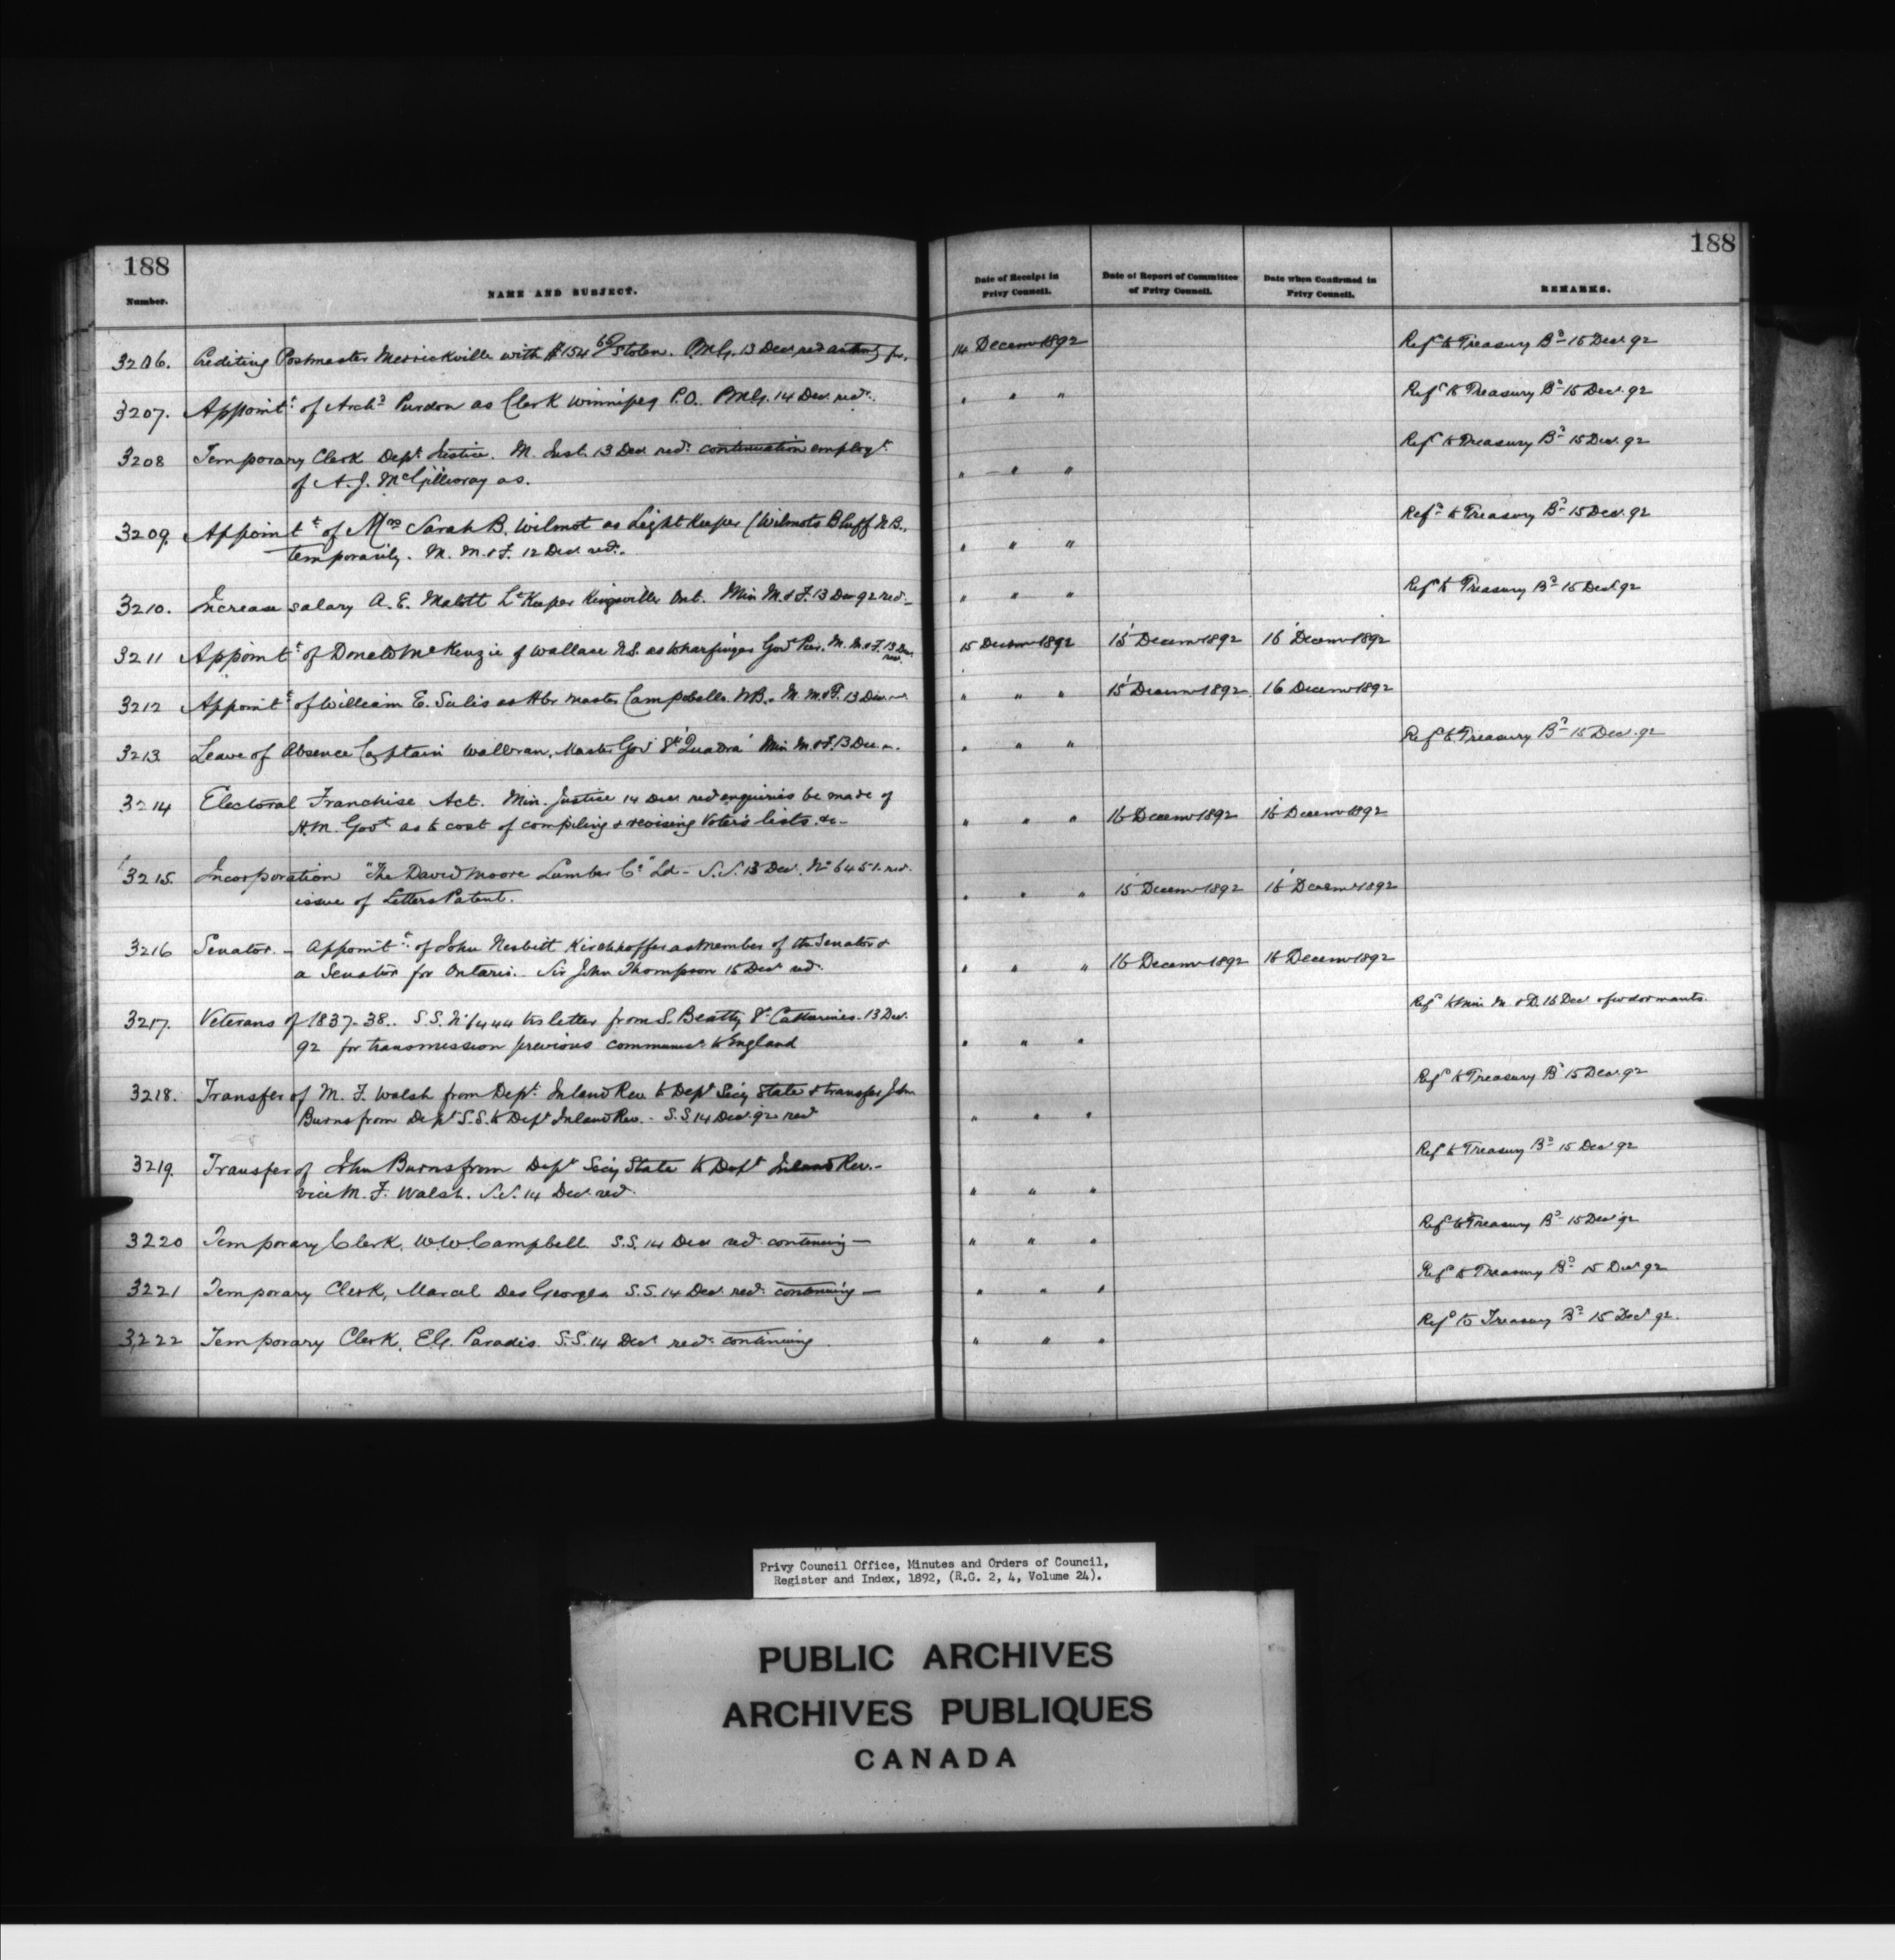 188
188
Number.
NAME AND SUBJECT.
Date of Receipt in Privy Council.
Date of Report of Committee of Privy Council.
Date when Confirmed in Privy Council.
REMARKS.
3206. Crediting Postmaster Merrickville with $154 60/ stolen. P.M.G. 13 Decr recd authority for. 14 Decemr 1892 Refd to Treasury Bd 15 Decr 92
3207. Appointt of Archd Purdon as Clerk Winnipeg P.O. P.M.G. 14 Decr recd. " " " Refd to Treasury Bd 15 Decr 92
3208 Temporary Clerk Dept Justice. M. Just. 13 Decr recd continuation employt
of A. J. McGillivray as. " " " Refd to Treasury Bd 15 Decr 92
3209. Appointt of Mrs Sarah B. Wilmot as Light Keeper (Wilmots Bluff N.B.,
temporarily. M. M. & F. 12 Decr recd. " " " Refd to Treasury Bd 15 Decr 92
3210. Increase salary A. E. Malott Lt Keeper Kingsville Ont. Min M. & F. 13 Decr 92 recd " " " Refd to Treasury Bd 15 Decr 92
3211 Appointt of Donald McKenzie of Wallace N.S. as Wharfinger Govt Pier. M. M. & F. 13 Decr recd. 15 Decemr 1892 15 Decemr 1892 16 Decemr 1892
3212 Appointt of William E. Sulis as Hbr Master Campobello N.B. M. M. & F. 13 Decr " " " 15 Decemr 1892 16 Decemr 1892
3213. Leave of Absence Captain Walbran, Master Govt Str 'Quadra' Min M. & F. 13 Dec. " " " Refd to Treasury Bd 15 Decr 92
3214 Electoral Franchise Act. Min. Justice 14 Decr recd enquiries be made of
H.M. Govt as to cost of compiling & revising Voter's lists &c " " " 16 Decemr 1892 16 Decemr 1892
3215. Incorporation "The David Moore Lumber Co" Ld - S.S. 13 Decr. No 6451. recd.
issue of Letters Patent. " " " 15 Decemr 1892 16 Decemr 1892
3216 Senator. - Appointt of John Nesbitt Kirchhoffer as Member of the Senate &
a Senator for Ontario. Sir John Thompson 15 Decr recd. " " " 16 Decemr 1892 16 Decemr 1892
3217. Veterans of 1837-38.. S.S. No 6444 letter from S. Beatty St Catharines. 13 Decr.
92 for transmission previous communn to England " " " Refd to Min M. & D. 16 Decr
3218. Transfer of M. F. Walsh from Dept Inland Rev. to Dept Secy State & transfer John
Burns from Dept S.S. to Dept Inland Rev. - S.S. 14 Decr 92 recd " " " Refd to Treasury Bd 15 Decr 92
3219. Transfer of John Burns from Dept Secy State to Dept Inland Rev. -
vice M. F. Walsh. S.S. 14 Decr recd. " " " Refd to Treasury Bd 15 Decr 92
3220 Temporary Clerk, W. W. Campbell S.S. 14 Decr recd continuing — " " " Refd to Treasury Bd 15 Decr 92
3221 Temporary Clerk, Marcel Des Georges S.S. 14 Decr recd continuing — " " " Refd to Treasury Bd 15 Decr 92
3222 Temporary Clerk, E. G. Paradis. S.S. 14 Decr recd continuing. " " " Refd to Treasury Bd 15 Decr 92.
Privy Council Office, Minutes and Orders of Council,
Register and Index, 1892, (R.G. 2, 4, Volume 24).
PUBLIC ARCHIVES
ARCHIVES PUBLIQUES
CANADA